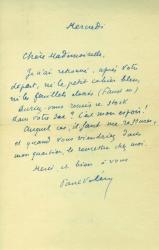 Mercredi
Chère Mademoiselle,
Je n'ai retrouvé, après votre
départ, ni le petit cahier bleu,
ni les feuillets
Auriez-vous remis ce stock
dans votre sac ? C'est mon espoir !
Auquel cas, il faut me rassurer,
et quand vous viendrez dans
mon quartier, le remettre chez moi.
Merci et bien à vous
Paul Valéry